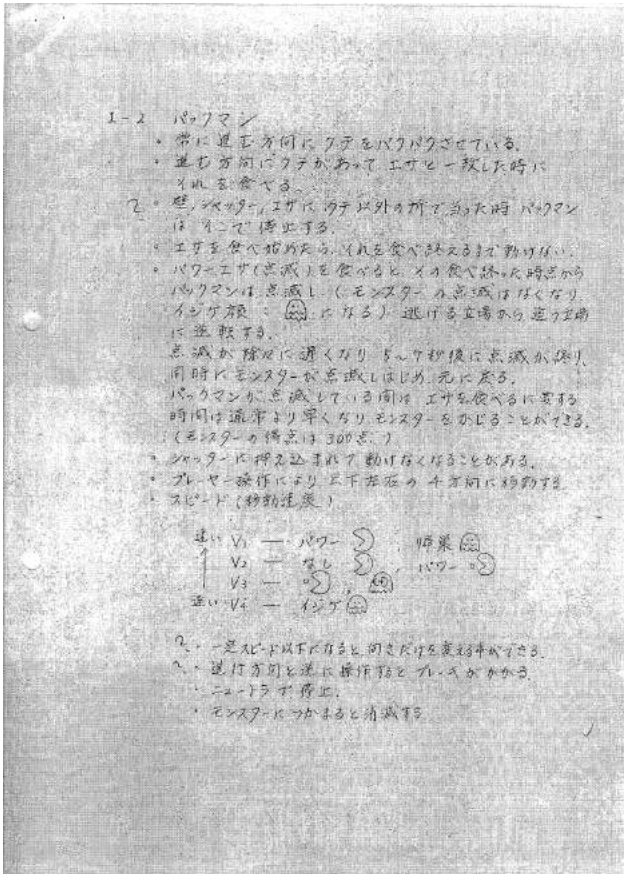 1-2 パックマン
・常に進む方向にクチをパクパクさせている.
・進む方向にクチがあって エサと一致した時に
それを食べる.
?・壁,シャッター,エサに クチ以外の所で当った時 パックマン
は そこで停止する.
・エサを食べ始めたら,それを食べ終えるまで動けない.
・パワーエサ(点滅)を食べると その食べ終った時点から
パックマンは点滅し (モンスターの点滅はなくなり
イジケ顔: になる) 逃げる立場から追う立場
に逆転する.
点滅が除々に遅くなり 5〜7秒後に点滅が終り,
同時にモンスターが点滅しはじめ 元に戻る.
パックマンが点滅している間は エサを食べるに要する
時間は通常より早くなり モンスターをかじることができる.
(モンスターの得点は300点.)
・シャッターに押え込まれて動けなくなることがある.
・プレーヤー操作により 上下左右の4方向に移動する
・スピード(移動速度)
速い V1 — パワー , 帰巣
V2 — なし , パワー
V3 —
遅い V4 — イジケ
?・一定スピード以下になると 向きだけを変える事ができる.
?・進行方向と逆に操作すると ブレーキがかかる.
・ニュートラで停止.
・モンスターにつかまると消滅する